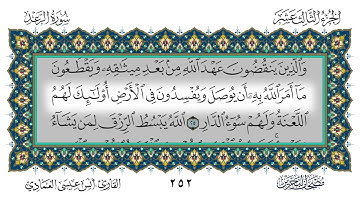 الجزء الثالث عشر
سورة الرعد
وَالَّذِينَ يَنقُضُونَ عَهْدَ اللَّهِ مِنْ بَعْدِ مِيثَاقِهِ وَيَقْطَعُونَ
مَا أَمَرَ اللَّهُ بِهِ أَنْ يُوصَلَ وَيُفْسِدُونَ فِي الْأَرْضِ أُولَٰئِكَ لَهُمُ
اللَّعْنَةُ وَلَهُمْ سُوءُ الدَّارِ ٢٥ اللَّهُ يَبْسُطُ الرِّزْقَ لِمَنْ يَشَاءُ
٢٥٢